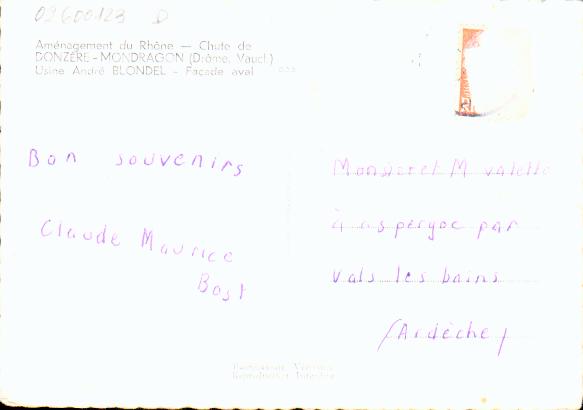 02600123 D
Aménagement du Rhône — Chute de
DONZÈRE-MONDRAGON (Drôme, Vaucl.)
Usine André BLONDEL - Façade aval
Bon souvenirs
Claude Maurice
Bost
Monsieret M valette
à aspergoc par
vals les bains
(Ardèche)
Reproduction Interdite